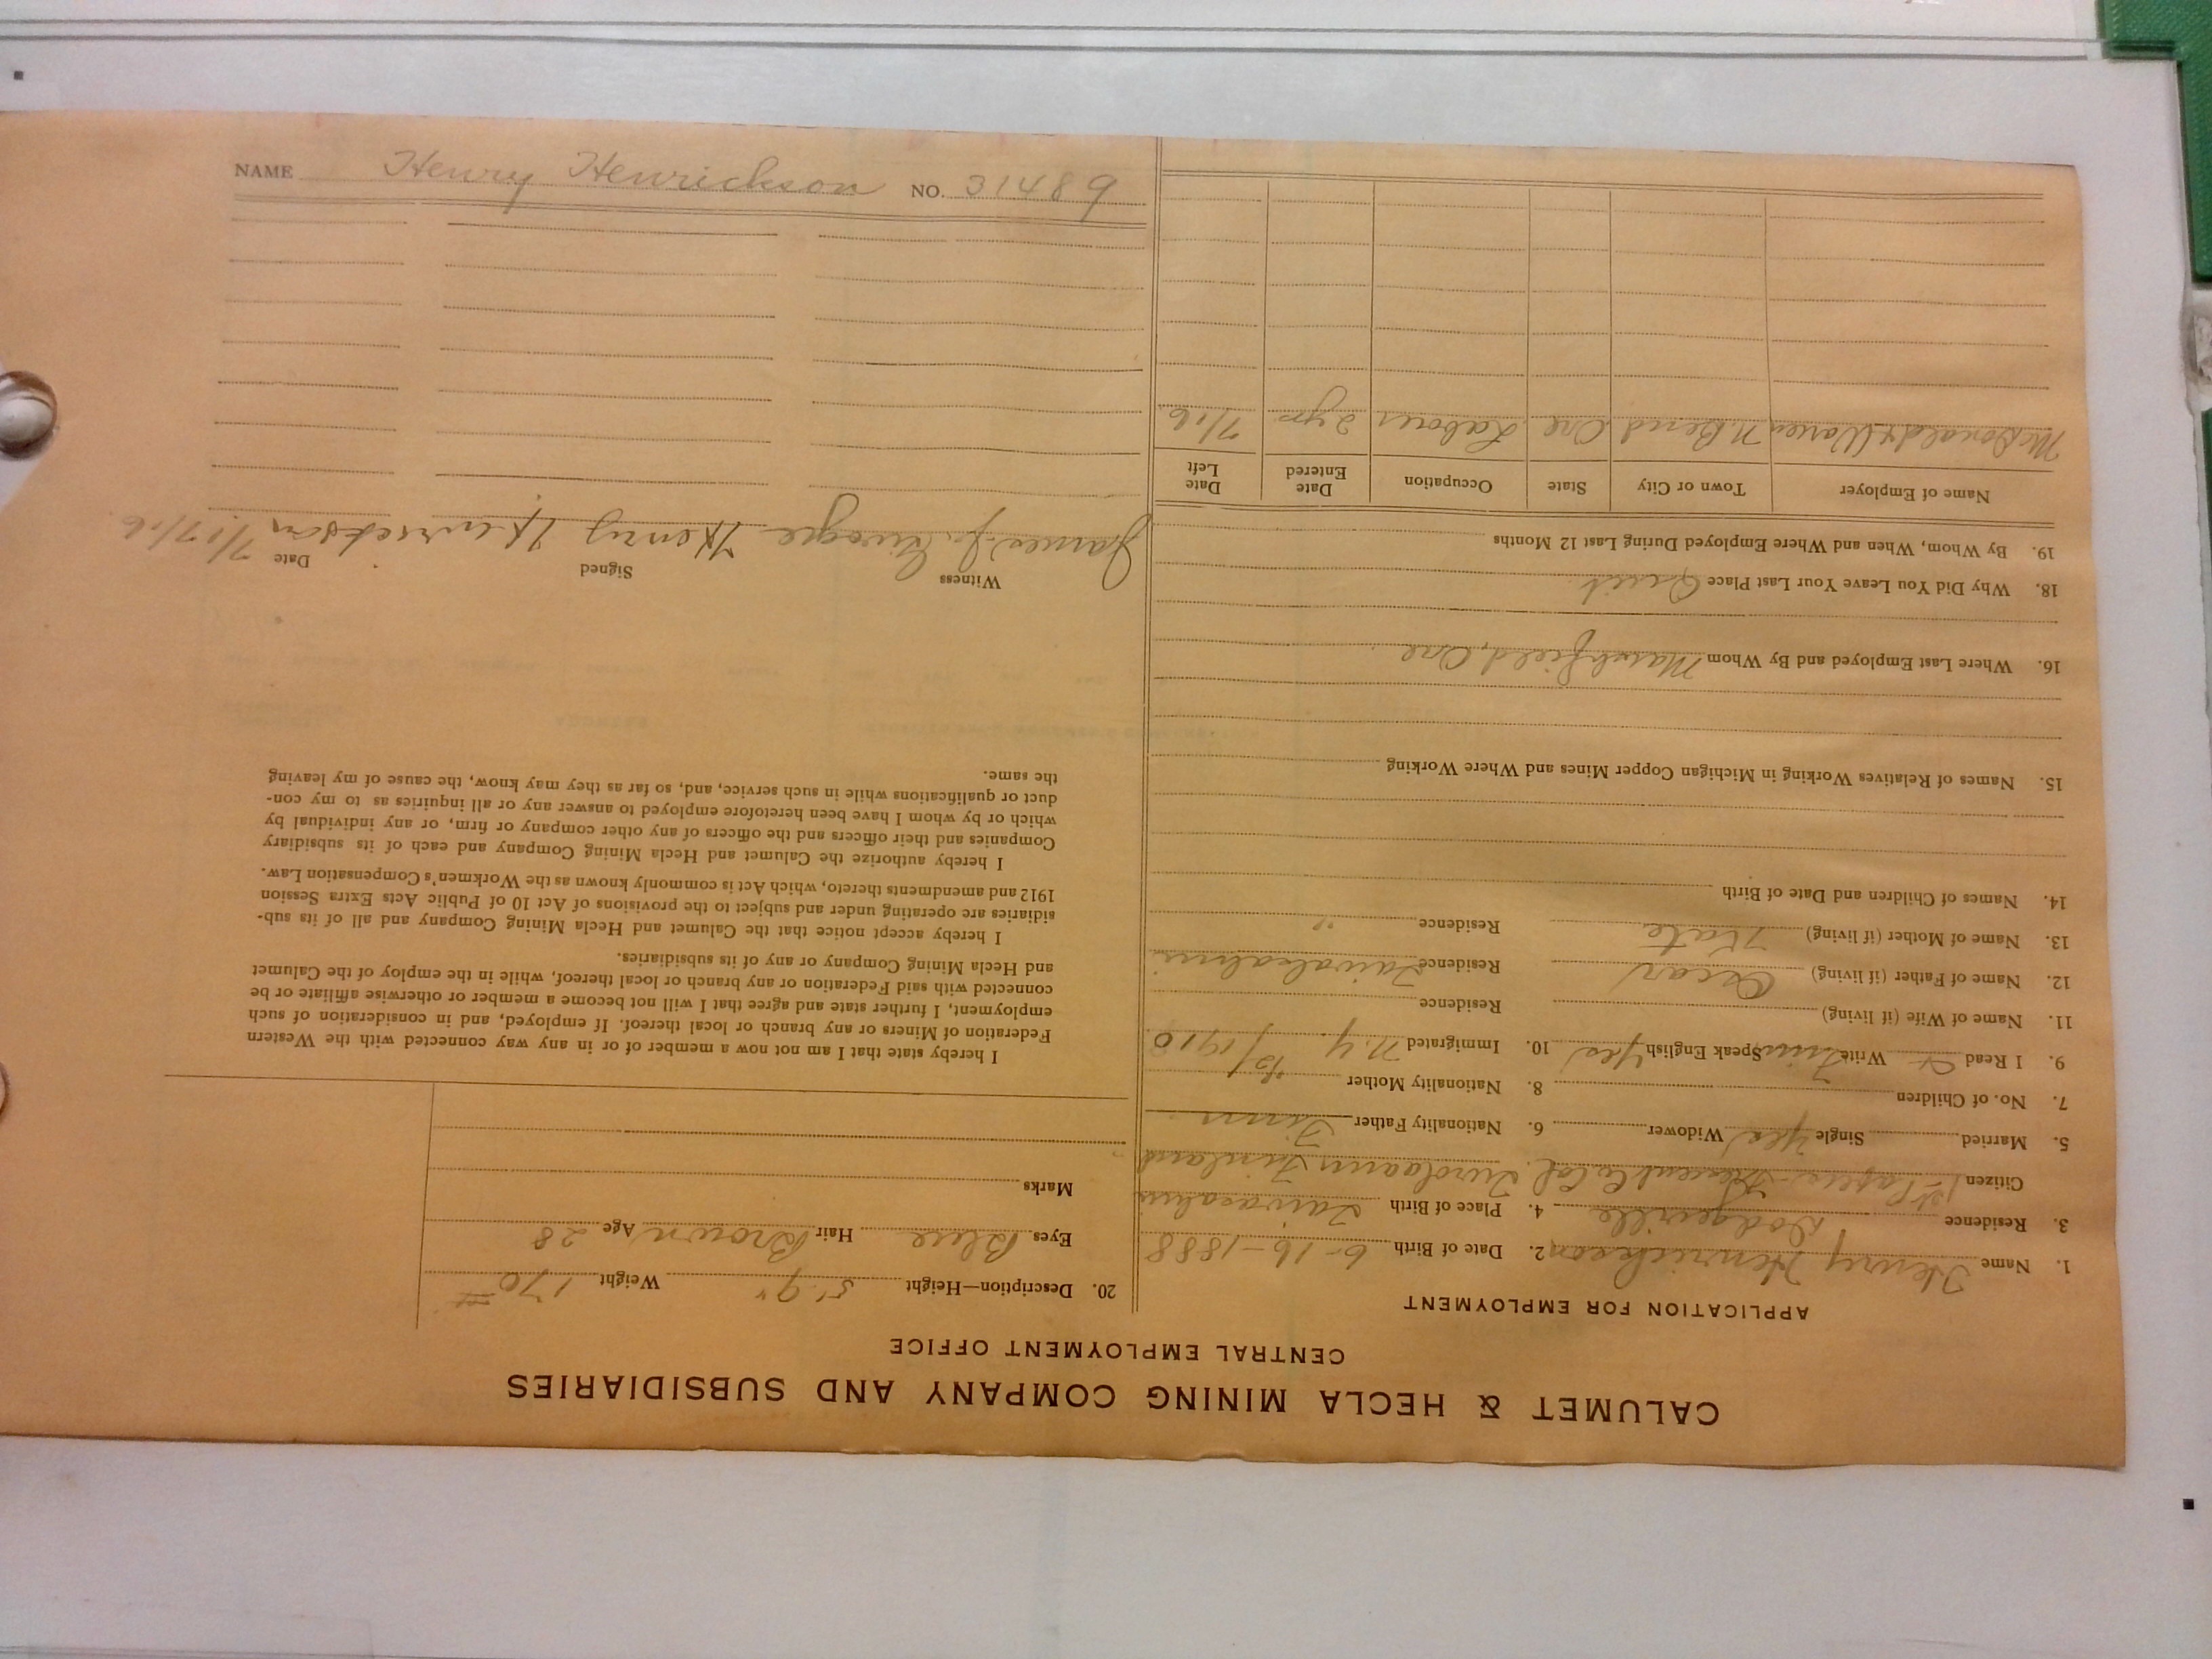 CALUMET & HECLA MINING COMPANY AND SUBSIDIARIES
CENTRAL EMPLOYMENT OFFICE
APPLICATION FOR EMPLOYMENT
1. Name Henry Henrickson 2. Date of Birth 6-16-1888
3. Residence Dodgeville 4. Place of Birth
Citizen 1st Papers Co. Cal. Finland
5. Married Single Yes Widower 6. Nationality Father Finn
7. No. of Children 8. Nationality Mother "
9. I Read & Write Finn Speak English Yes 10. Immigrated N.Y. 1910
11. Name of Wife (if living) Residence
12. Name of Father (if living) Oscar Residence
13. Name of Mother (if living) Kate Residence "
14. Names of Children and Date of Birth
15. Names of Relatives Working in Michigan Copper Mines and Where Working
16. Where Last Employed and By Whom Marshfield, Ore
18. Why Did You Leave Your Last Place Quit
19. By Whom, When and Where Employed During Last 12 Months
Name of Employer Town or City State Occupation Date Entered Date Left
McDonald & N. Bend Ore Laborer 2 yrs 7/16
20. Description—Height 5' 9" Weight 170 #
Eyes Blue Hair Brown Age 28
Marks
I hereby state that I am not now a member of or in any way connected with the Western
Federation of Miners or any branch or local thereof. If employed, and in consideration of such
employment, I further state and agree that I will not become a member or otherwise affiliate or be
connected with said Federation or any branch or local thereof, while in the employ of the Calumet
and Hecla Mining Company or any of its subsidiaries.
I hereby accept notice that the Calumet and Hecla Mining Company and all of its sub-
sidiaries are operating under and subject to the provisions of Act 10 of Public Acts Extra Session
1912 and amendments thereto, which Act is commonly known as the Workmen's Compensation Law.
I hereby authorize the Calumet and Hecla Mining Company and each of its subsidiary
Companies and their officers and the officers of any other company or firm, or any individual by
which or by whom I have been heretofore employed to answer any or all inquiries as to my con-
duct or qualifications while in such service, and, so far as they may know, the cause of my leaving
the same.
Witness Signed Date
James Henry Henrickson 7/17/16
NAME Henry Henrickson NO. 31489